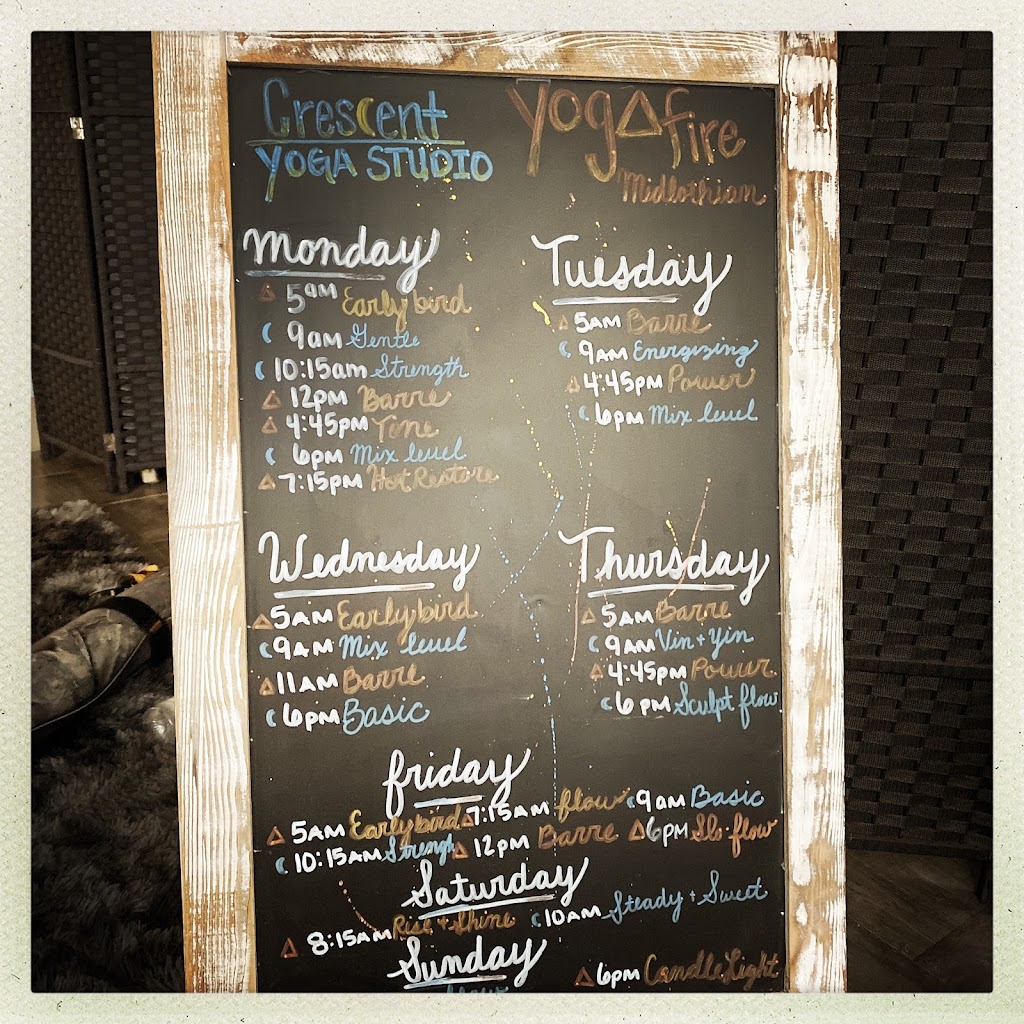 Crescent
YOGA STUDIO
Yoga fire
Midlothian
Monday
5am Early bird
9am Gentle
10:15am Strength
12pm Barre
4:45pm Tone
6pm Mix level
7:15pm Hot Restore
Tuesday
5AM Barre
9AM Energizing
4:45pm Power
6pm Mix level
Wednesday
5AM Early bird
9AM Mix level
11AM Barre
6pm Basic
Thursday
5AM Barre
9AM Vin + Yin
4:45pm Power
6pm Sculpt flow
friday
5AM Early bird 7:15AM flow 9am Basic
10:15AM Strength 12pm Barre 6pm Slo-flow
Saturday
8:15AM Rise + Shine 10AM Steady + Sweet
Sunday
6pm Candle Light